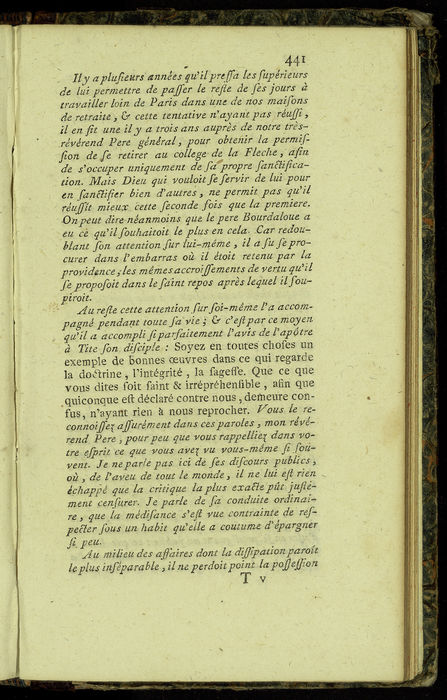 441
Il y a pluſieurs années qu'il preſſa les ſupérieurs
de lui permettre de paſſer le reſte de ſes jours à
travailler loin de Paris dans une de nos maiſons
de retraite, & cette tentative n'ayant pas réuſſi,
il en fit une il y a trois ans auprès de notre très-
révérend Pere général, pour obtenir la permiſ-
ſion de ſe retirer au college de la Fleche, afin
de s'occuper uniquement de ſa propre ſanctifica-
tion. Mais Dieu qui vouloit ſe ſervir de lui pour
en ſanctifier bien d'autres, ne permit pas qu'il
réuſſit mieux cette ſeconde fois que la premiere.
On peut dire néanmoins que le pere Bourdaloue a
eu ce qu'il ſouhaitoit le plus en cela. Car redou-
blant ſon attention ſur lui-même, il a ſu ſe pro-
curer dans l'embarras où il étoit retenu par la
providence; les mêmes accroiſſements de vertu qu'il
ſe propoſoit dans le ſaint repos après lequel il ſou-
piroit.
Au reſte cette attention ſur ſoi-même l'a accom-
pagné pendant toute ſa vie; & c'eſt par ce moyen
qu'il a accompli ſi parfaitement l'avis de l'apôtre
à Tite ſon diſciple : Soyez en toutes choſes un
exemple de bonnes œuvres dans ce qui regarde
la doctrine, l'intégrité, la ſageſſe. Que ce que
vous dites ſoit ſaint & irrépréhenſible, afin que
quiconque eſt déclaré contre nous, demeure con-
fus, n'ayant rien à nous reprocher. Vous le re-
connoiſſez aſſurément dans ces paroles, mon révé-
rend Pere, pour peu que vous rappelliez dans vo-
tre eſprit ce que vous avez vu vous-même ſi ſou-
vent. Je ne parle pas ici de ſes diſcours publics,
où, de l'aveu de tout le monde, il ne lui eſt rien
échappé que la critique la plus exacte pût juſté-
ment cenſurer. Je parle de ſa conduite ordinai-
re, que la médiſance s'eſt vue contrainte de reſ-
pecter ſous un habit qu'elle a coutume d'épargner
ſi peu.
Au milieu des affaires dont la diſſipation paroît
le plus inſéparable, il ne perdoit point la poſſeſſion
T v